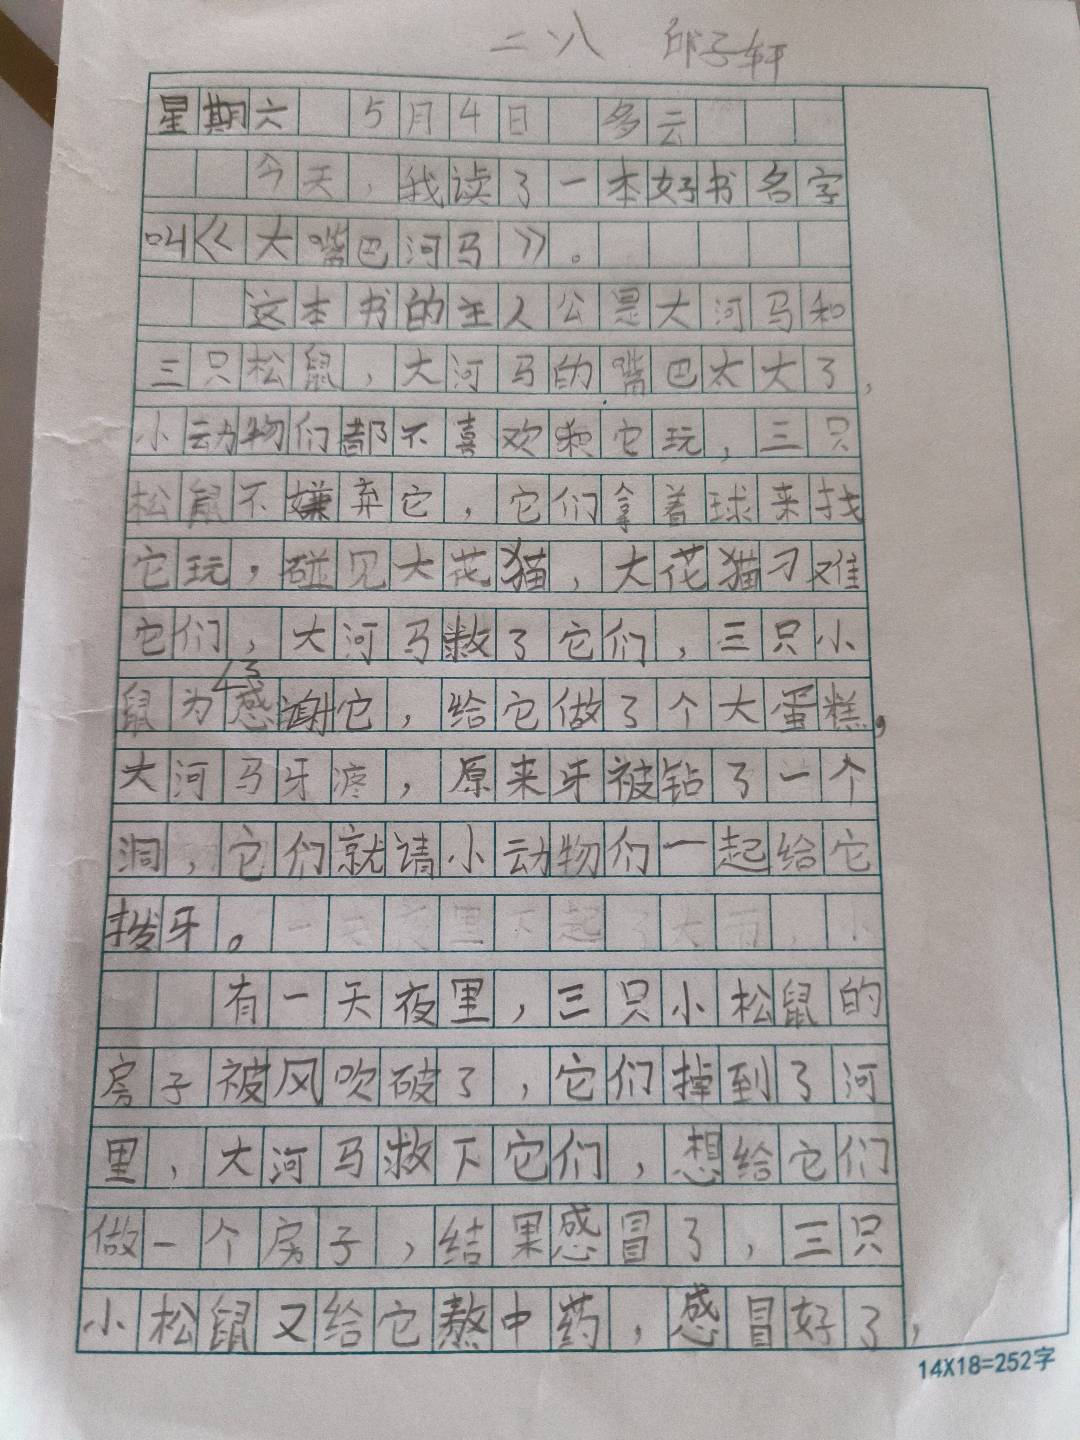 二八 邱子轩
星期六 5月4日 多云
今天，我读了一本好书名字
叫《大嘴巴河马》。
这本书的主人公是大河马和
三只松鼠，大河马的嘴巴太大了，
小动物们都不喜欢和它玩，三只
松鼠不嫌弃它，它们拿着球来找
它玩，碰见大花猫，大花猫刁难
它们，大河马救了它们，三只小
鼠为了感谢它，给它做了个大蛋糕，
大河马牙疼，原来牙被钻了一个
洞，它们就请小动物们一起给它
拨牙。
有一天夜里，三只小松鼠的
房子被风吹破了，它们掉到了河
里，大河马救下它们，想给它们
做一个房子，结果感冒了，三只
小松鼠又给它熬中药，感冒好了，
14X18=252字